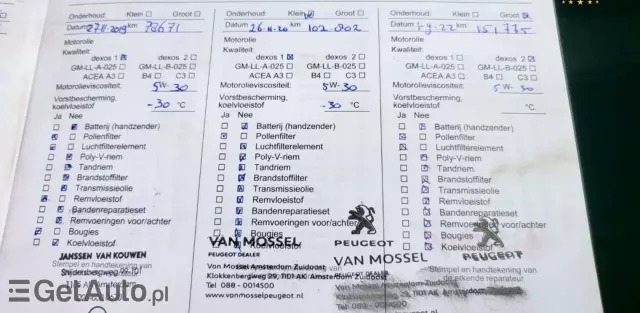 Onderhoud: Klein Groot
Datum 27-11-2019 km 78671
Motorolie
Kwaliteit:
dexos 1 dexos 2
GM-LL-A-025 GM-LL-B-025
ACEA A3 B4 C3
Motorolieviscositeit: 5W-30
Vorstbescherming, koelvloeistof -30 °C
Ja Nee
Batterij (handzender)
Pollenfilter
Luchtfilterelement
Poly-V-riem
Tandriem
Brandstoffilter
Transmissieolie
Remvloeistof
Bandenreparatieset
Remvoeringen voor/achter
Bougies
Koelvloeistof
JANSSEN VAN KOUWEN
Stempel en handtekening van
Onderhoud: Klein Groot
Datum 26-11-20 km 102.802
Motorolie
Kwaliteit:
dexos 1 dexos 2
GM-LL-A-025 GM-LL-B-025
ACEA A3 B4 C3
Motorolieviscositeit: 5W-30
Vorstbescherming, koelvloeistof -30 °C
Ja Nee
Batterij (handzender)
Pollenfilter
Luchtfilterelement
Poly-V-riem
Tandriem
Brandstoffilter
Transmissieolie
Remvloeistof
Bandenreparatieset
Remvoeringen voor/achter
Bougies
Koelvloeistof
VAN MOSSEL
PEUGEOT
PEUGEOT DEALER
Van Mossel Amsterdam Zuidoost
Klokkenbergweg 29, 1101 AK Amsterdam
Tel: 088 - 0014500
www.vanmosselpeugeot.nl
Onderhoud: Klein Groot
Datum km 151,775
Motorolie
Kwaliteit:
dexos 1 dexos 2
GM-LL-A-025 GM-LL-B-025
ACEA A3 B4 C3
Motorolieviscositeit: 5W-30
Vorstbescherming, koelvloeistof °C
Ja Nee
Batterij (handzender)
Pollenfilter
Luchtfilterelement
Poly-V-riem
Tandriem
Brandstoffilter
Transmissieolie
Remvloeistof
Bandenreparatieset
Remvoeringen voor/achter
Bougies
Koelvloeistof
PEUGEOT
VAN MOSSEL
PEUGEOT DEALER
Stempel en handtekening van
de erkende reparateur
GetAuto.pl